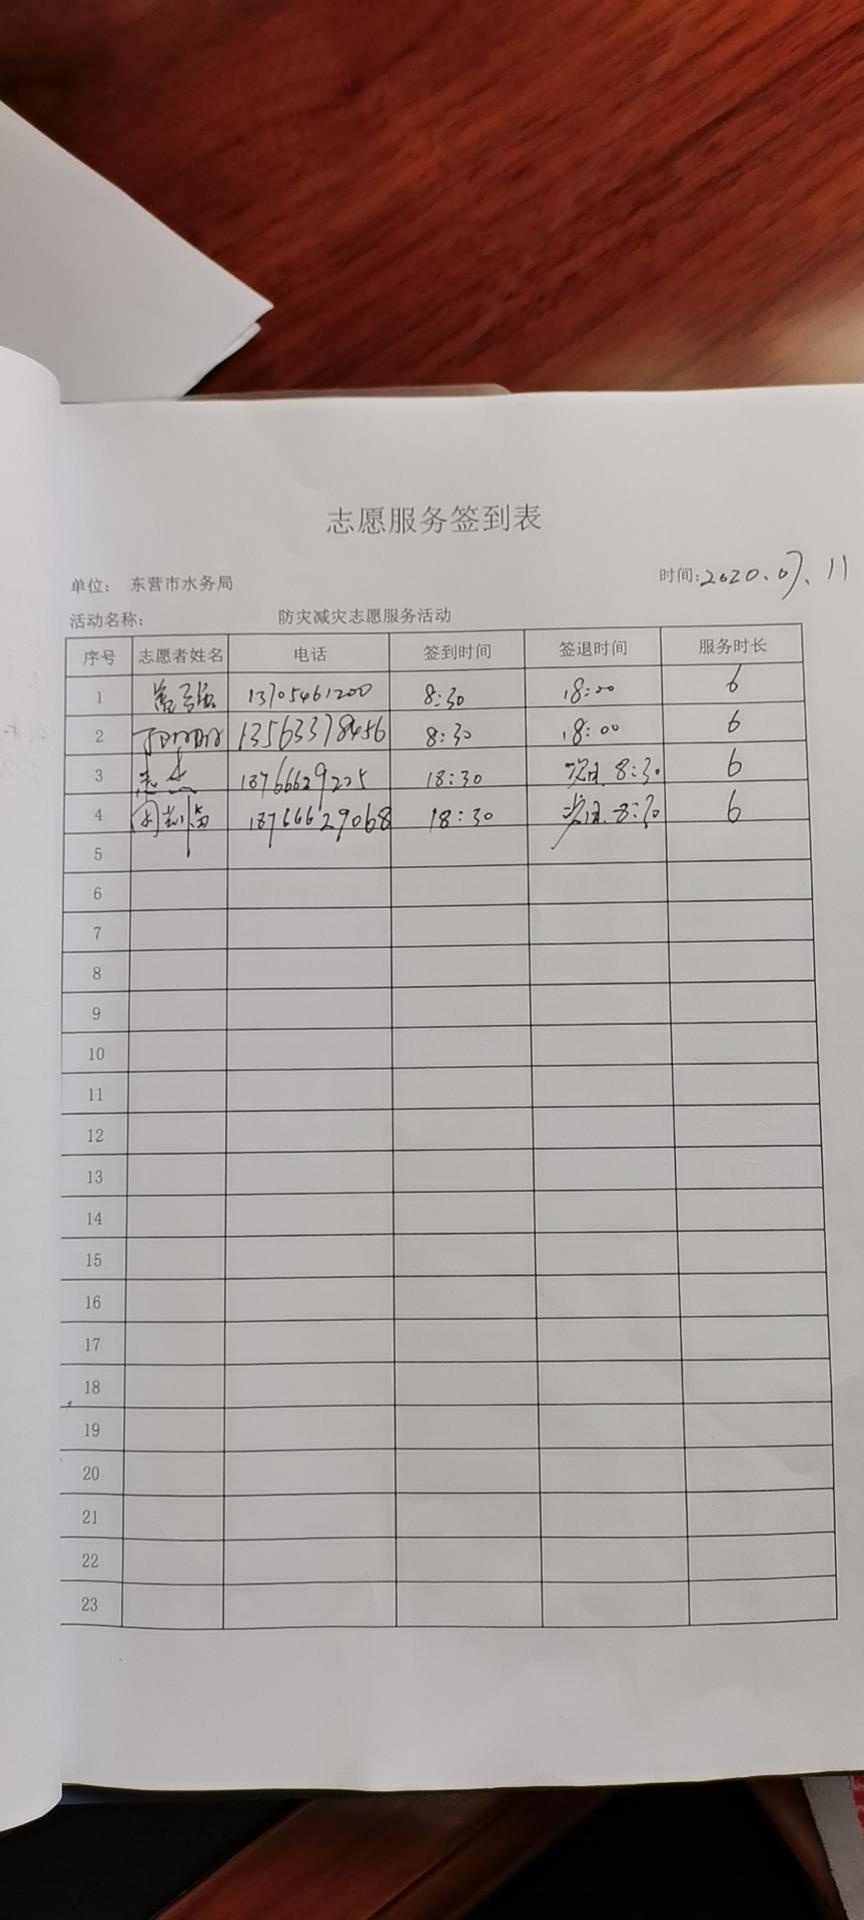 志愿服务签到表
单位： 东营市水务局 时间:2020.07.11
活动名称: 防灾减灾志愿服务活动
序号 志愿者姓名 电话 签到时间 签退时间 服务时长
1 13705461200 8:30 18:00 6
2 13563378456 8:30 18:00 6
3 18766629225 18:30 次日 8:30 6
4 18766629068 18:30 次日 8:30 6
5
6
7
8
9
10
11
12
13
14
15
16
17
18
19
20
21
22
23